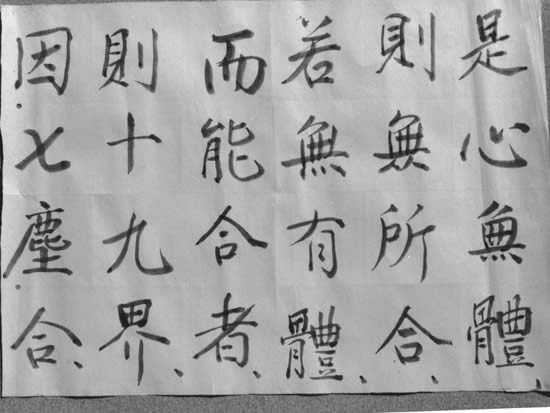 是心無體、
則無所合、
若無有體、
而能合者、
則十九界、
因七塵合、